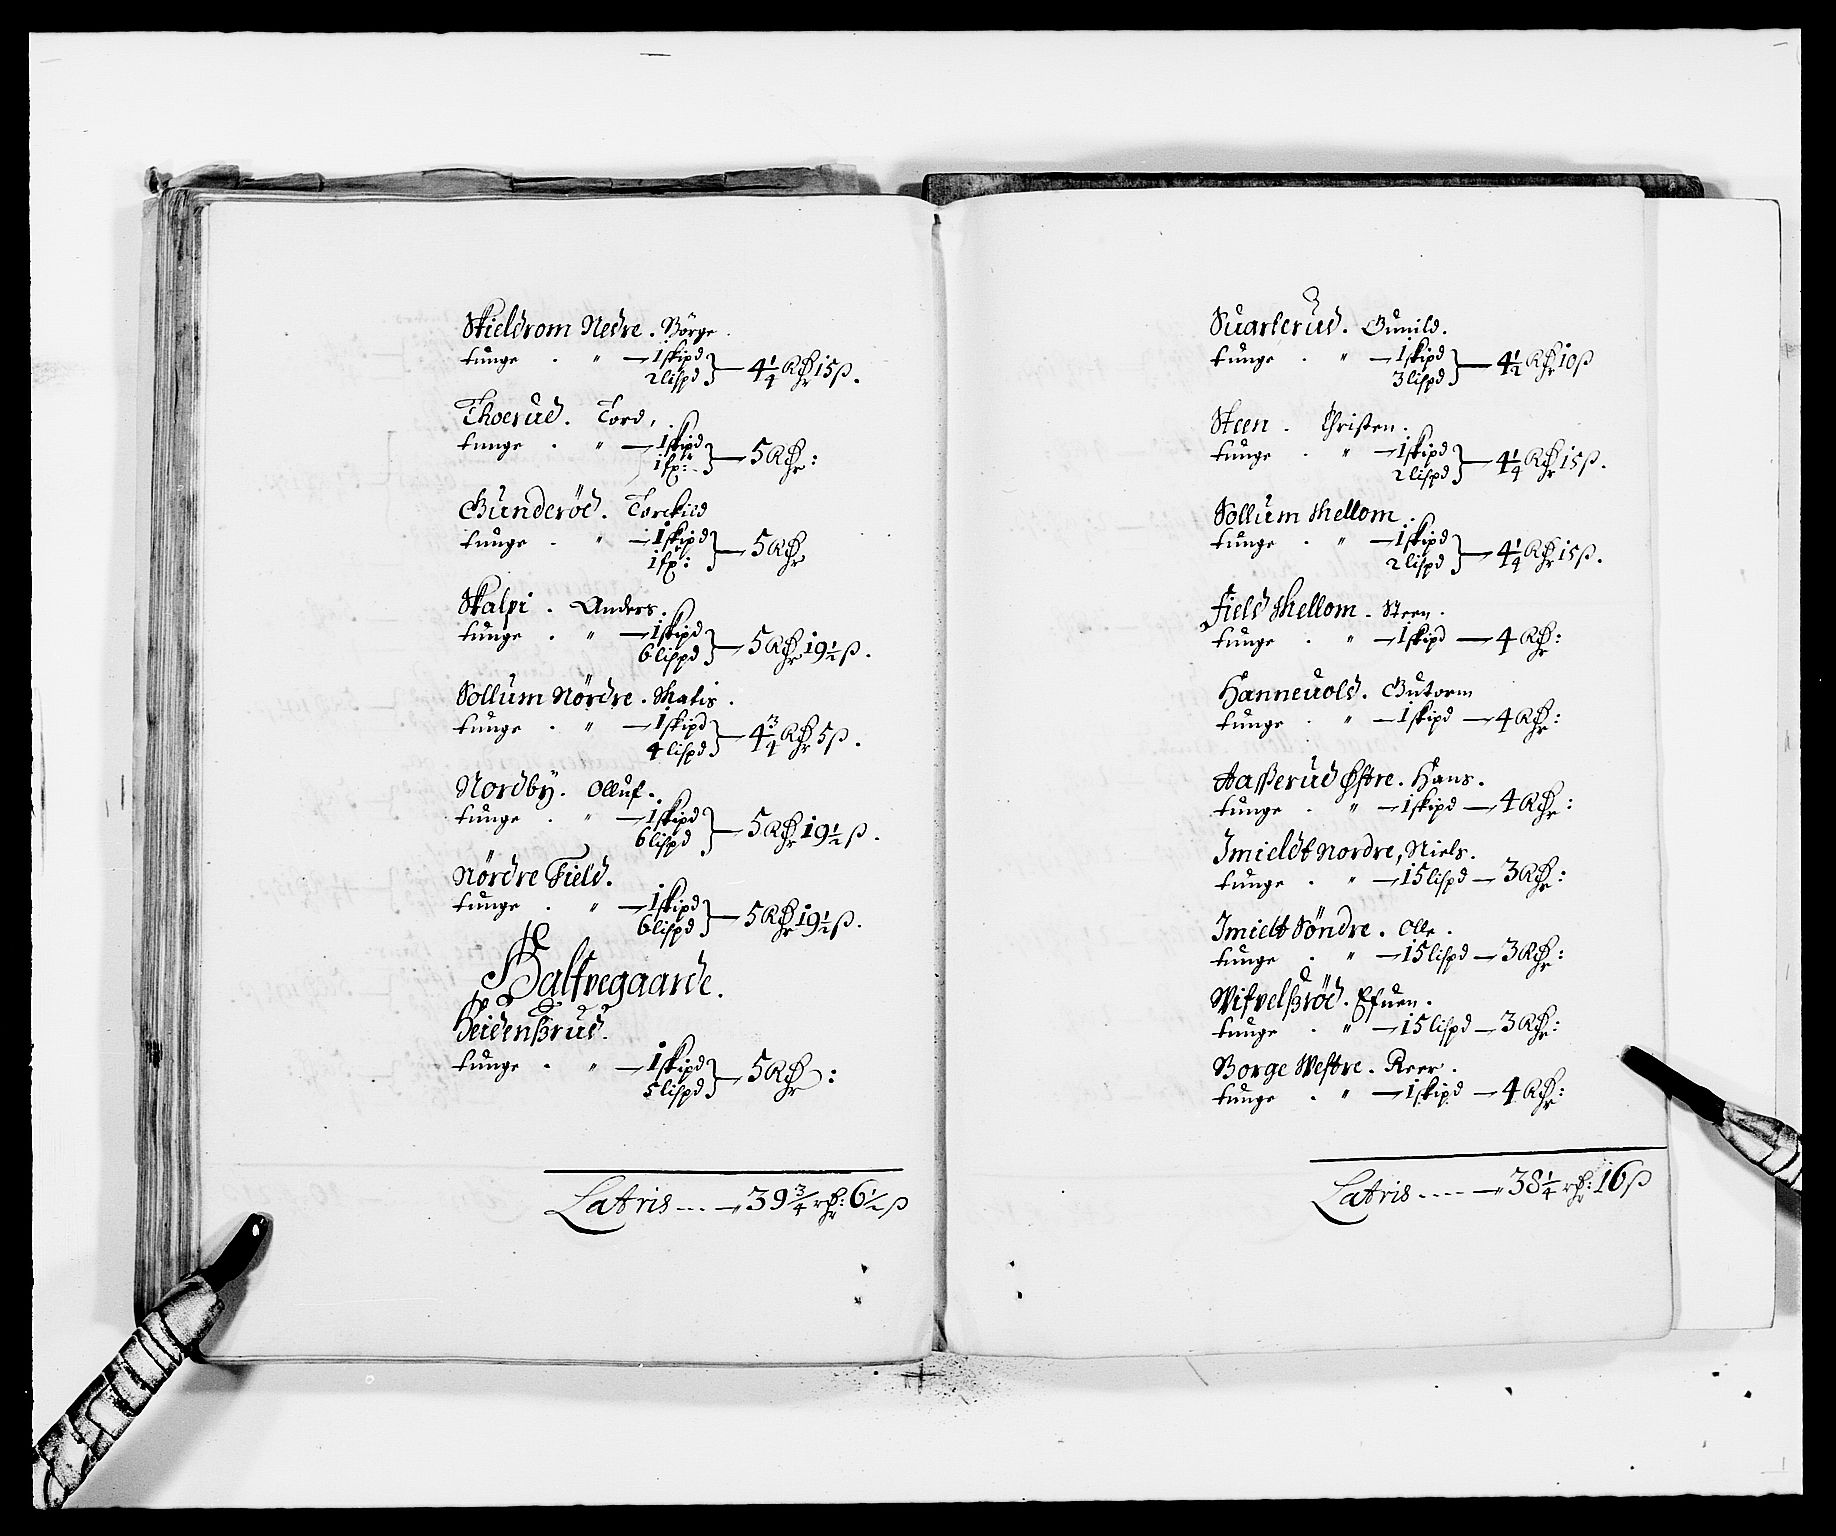 Skieldrom Nedre. Börge.
tunge . " — 1 skipd
2 lispd } — 4¼ Rdr 15 ß.
Thoerud. Tord.
tunge . " — 1 skipd
1 sp: } — 5 Rdr:
Gunderöd. Torckild
tunge . " — 1 skipd
1 sp: } — 5 Rdr
Skalpi. Anders.
tunge . " — 1 skipd
6 lispd } — 5 Rdr 19½ ß.
Sollum Nördre. Matis.
tunge . " — 1 skipd
4 lispd } — 4¾ Rdr 5 ß.
Nordby. Olluf.
tunge . " — 1 skipd
6 lispd } — 5 Rdr 19½ ß.
Nördre Field.
tunge . " — 1 skipd
6 lispd } — 5 Rdr 19½ ß.
Halfvegaarde.
Heidenßrud.
tunge . " — 1 skipd
5 lispd } — 5 Rdr:
Latris --- 39¾ rdr: 6½ ß
Suarterud. Gunild.
tunge . " — 1 skipd
3 lispd } — 4½ Rdr 10 ß
Steen. Christen.
tunge . " — 1 skipd
2 lispd } — 4¼ Rdr 15 ß.
Sollum Mellom.
tunge . " — 1 skipd
2 lispd } — 4¼ Rdr 15 ß.
Field Mellom. Steen.
tunge . " — 1 skipd — 4 Rdr:
Hanneuold. Gutorm
tunge . " — 1 skipd — 4 Rdr:
Aaßerud Østre. Hans.
tunge . " — 1 skipd — 4 Rdr:
Imieldt Nordre, Niels.
tunge . " — 15 lispd — 3 Rdr:
Imieldt Söndre. Olle.
tunge . " — 15 lispd — 3 Rdr:
Witvelßröd. Efuen.
tunge . " — 15 lispd — 3 Rdr:
Borge Westre. Reer.
tunge . " — 1 skipd — 4 Rdr:
Latris ---- 38¼ rdr: 16 ß